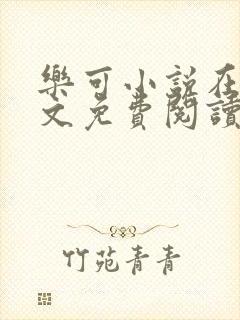 樂可小說在
文免費閱讀
竹苑青青